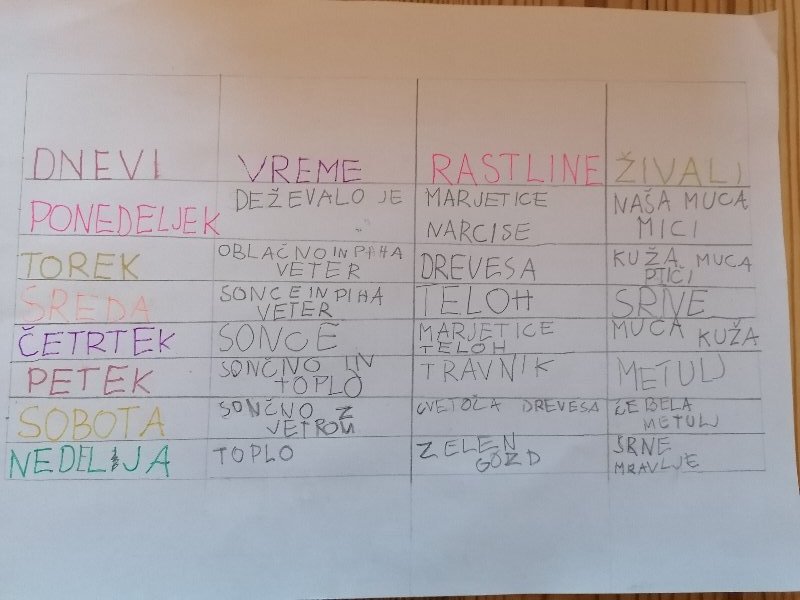 DNEVI VREME RASTLINE ŽIVALI
PONEDELJEK DEŽEVALO JE MARJETICE NARCISE NAŠA MUCA MICI
TOREK OBLAČNO IN PIHA VETER DREVESA KUŽA, MUCA PTIČI
SREDA SONCE IN PIHA VETER TELOH SRNE
ČETRTEK SONCE MARJETICE TELOH MUCA KUŽA
PETEK SONČNO IN TOPLO TRAVNIK METULJ
SOBOTA SONČNO Z VETROM CVETOČA DREVESA ČEBELA METULJ
NEDELJA TOPLO ZELEN GOZD SRNE MRAVLJE